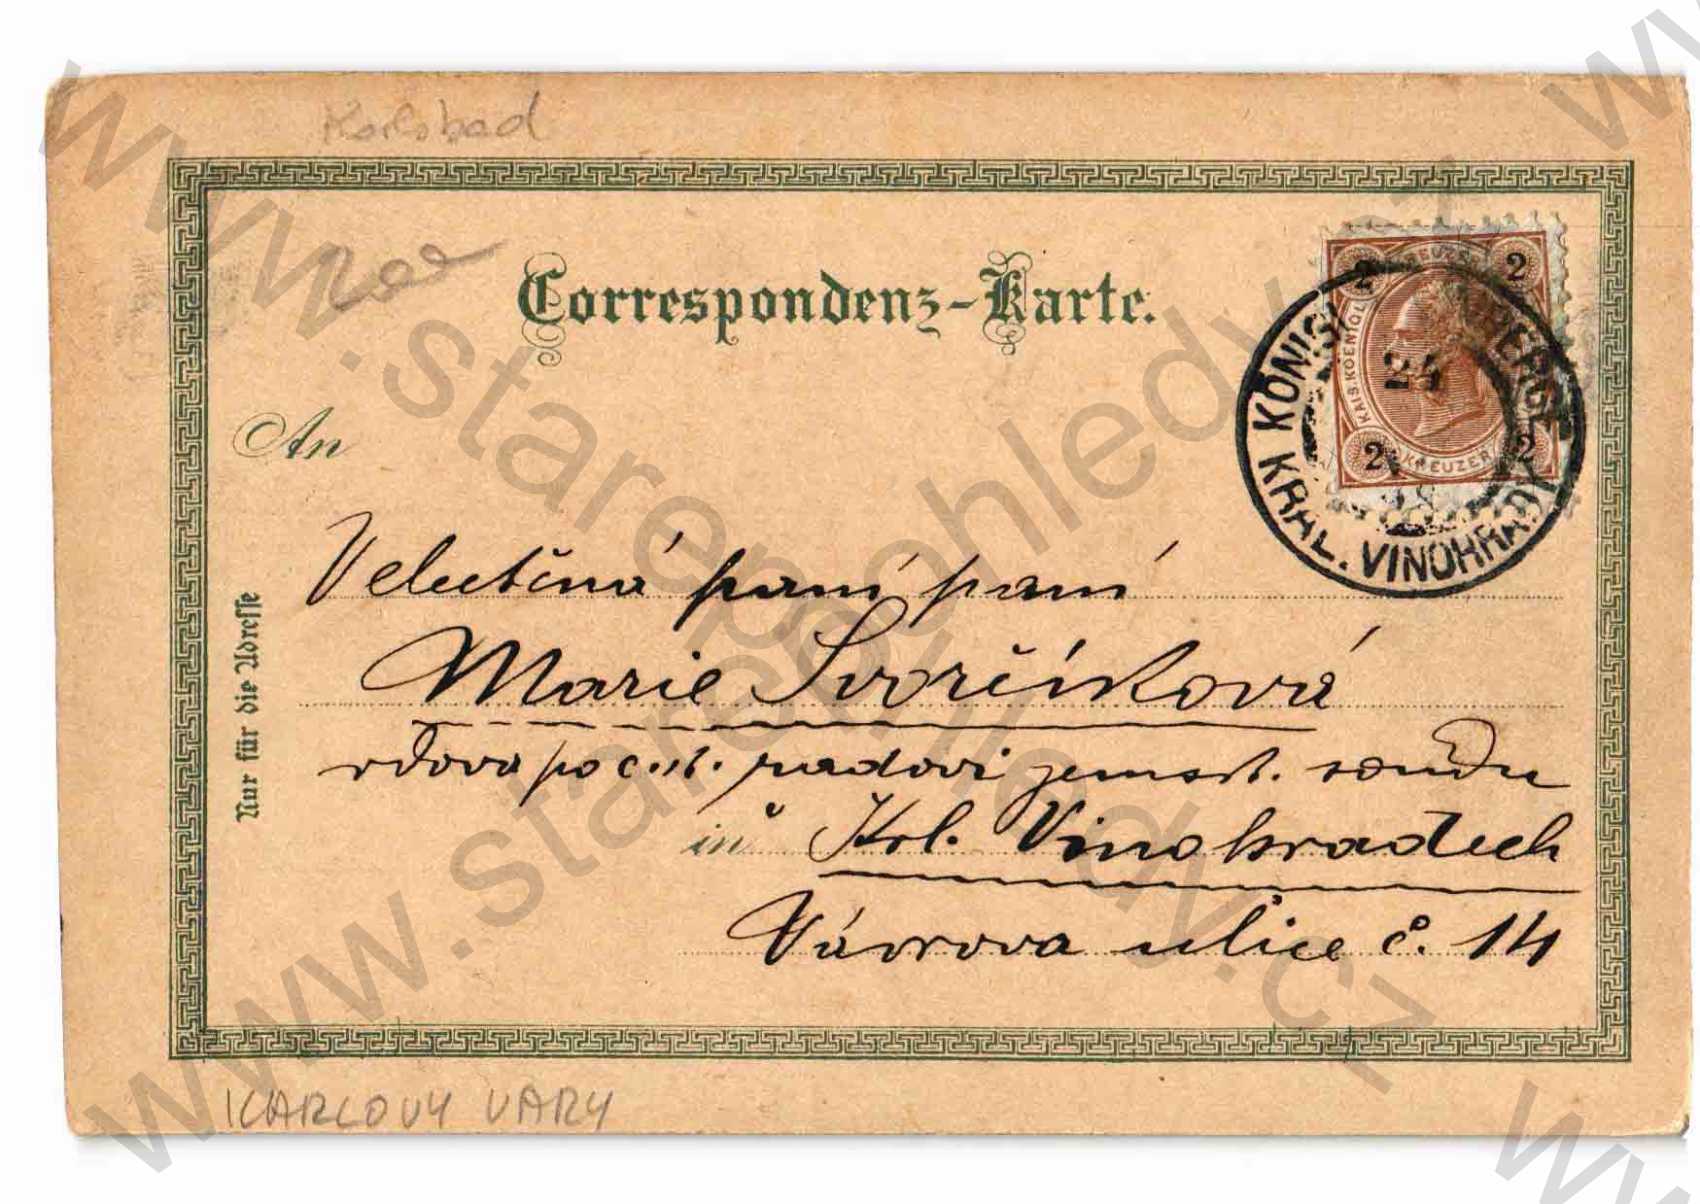 Karlsbad
Correspondenz-Karte.
2 KREUTZER 2
KAIS. KOENIGL.
2 KREUZER 2
24
KRÁL. VINOHRADY
An
Velectěná paní paní
Marie Svorčíková
vdova po c. k. radovi zemsk. soudu
in Krl. Vinohradech
Vávrova ulice č. 14
Nur für die Adresse
KARLOVY VARY
www.starepohledy.cz
www.starepohledy.cz